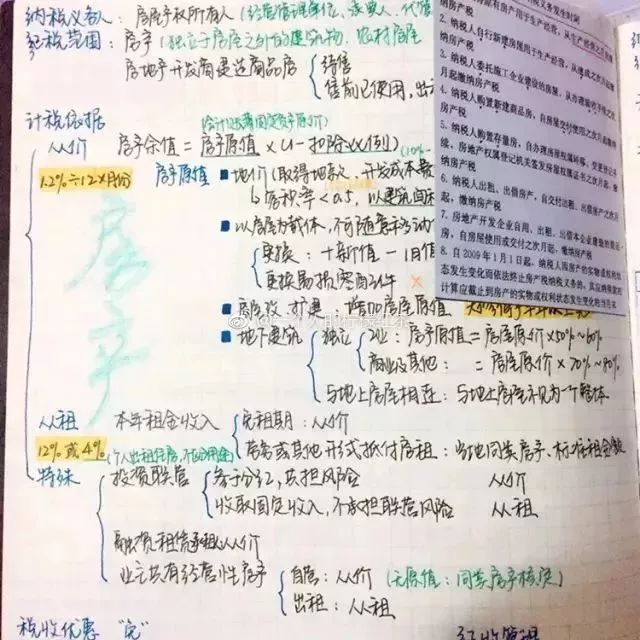 纳税义务人: 房屋产权所有人 (经营管理单位、承典人、代管
征税范围: 房产 (独立于房屋之外的建筑物、农村房屋
房地产开发商建造商品房 待售
售前已使用、出
计税依据 (会计账簿固定资产原价)
从价 房产余值 = 房产原值 × (1-扣除比例) (10%
1.2%÷12×月份 房产原值 ■地价 (取得地款、开发成本费
容积率<0.5, 以建筑面积
■以房屋为载体, 不可随意移动
更换: +新价值 - 旧值
更换易损零配件 ×
■房屋改、扩建: 增加房屋原值
■地下建筑 独立 工业: 房产原值 = 房屋原价×50%~60%
商业及其他: = 房屋原价×70%~80%
与地上房屋相连: 与地上房屋视为一个整体
从租 本年租金收入 免租期: 从价
12%或4% (个人出租住房, 不区分用途) 劳务或其他形式抵付房租: 当地同类房产、标准租金额
特殊 投资联营 参与分红, 共担风险 从价
收取固定收入, 不承担联营风险 从租
融资租赁 从价
业主共有经营性房产 自营: 从价 (无原值: 同类房产核定)
出租: 从租
税收优惠
房产
原有房产用于生产经营, 从生产经营之月
纳房产税
2. 纳税人自行新建房屋用于生产经营, 从建成之次月起缴
纳房产税
3. 纳税人委托施工企业建设的房屋, 从办理验收手续之次
月起缴纳房产税
4. 纳税人购置新建商品房, 自房屋交付使用之次月起缴纳
房产税
5. 纳税人购置存量房, 自办理房屋权属转移、变更登记手
续, 房地产权属登记机关签发房屋权属证书之次月起, 缴
纳房产税
6. 纳税人出租、出借房产, 自交付出租、出借房产之次月
起, 缴纳房产税
7. 房地产开发企业自用、出租、出借本企业建造的商品
房, 自房屋使用或交付之次月起, 缴纳房产税
8. 自 2009 年 1 月 1 日起, 纳税人因房产的实物或权利状
态发生变化而依法终止房产税纳税义务的, 其应纳税款的
计算应截止到房产的实物或权利状态发生变化的当月末